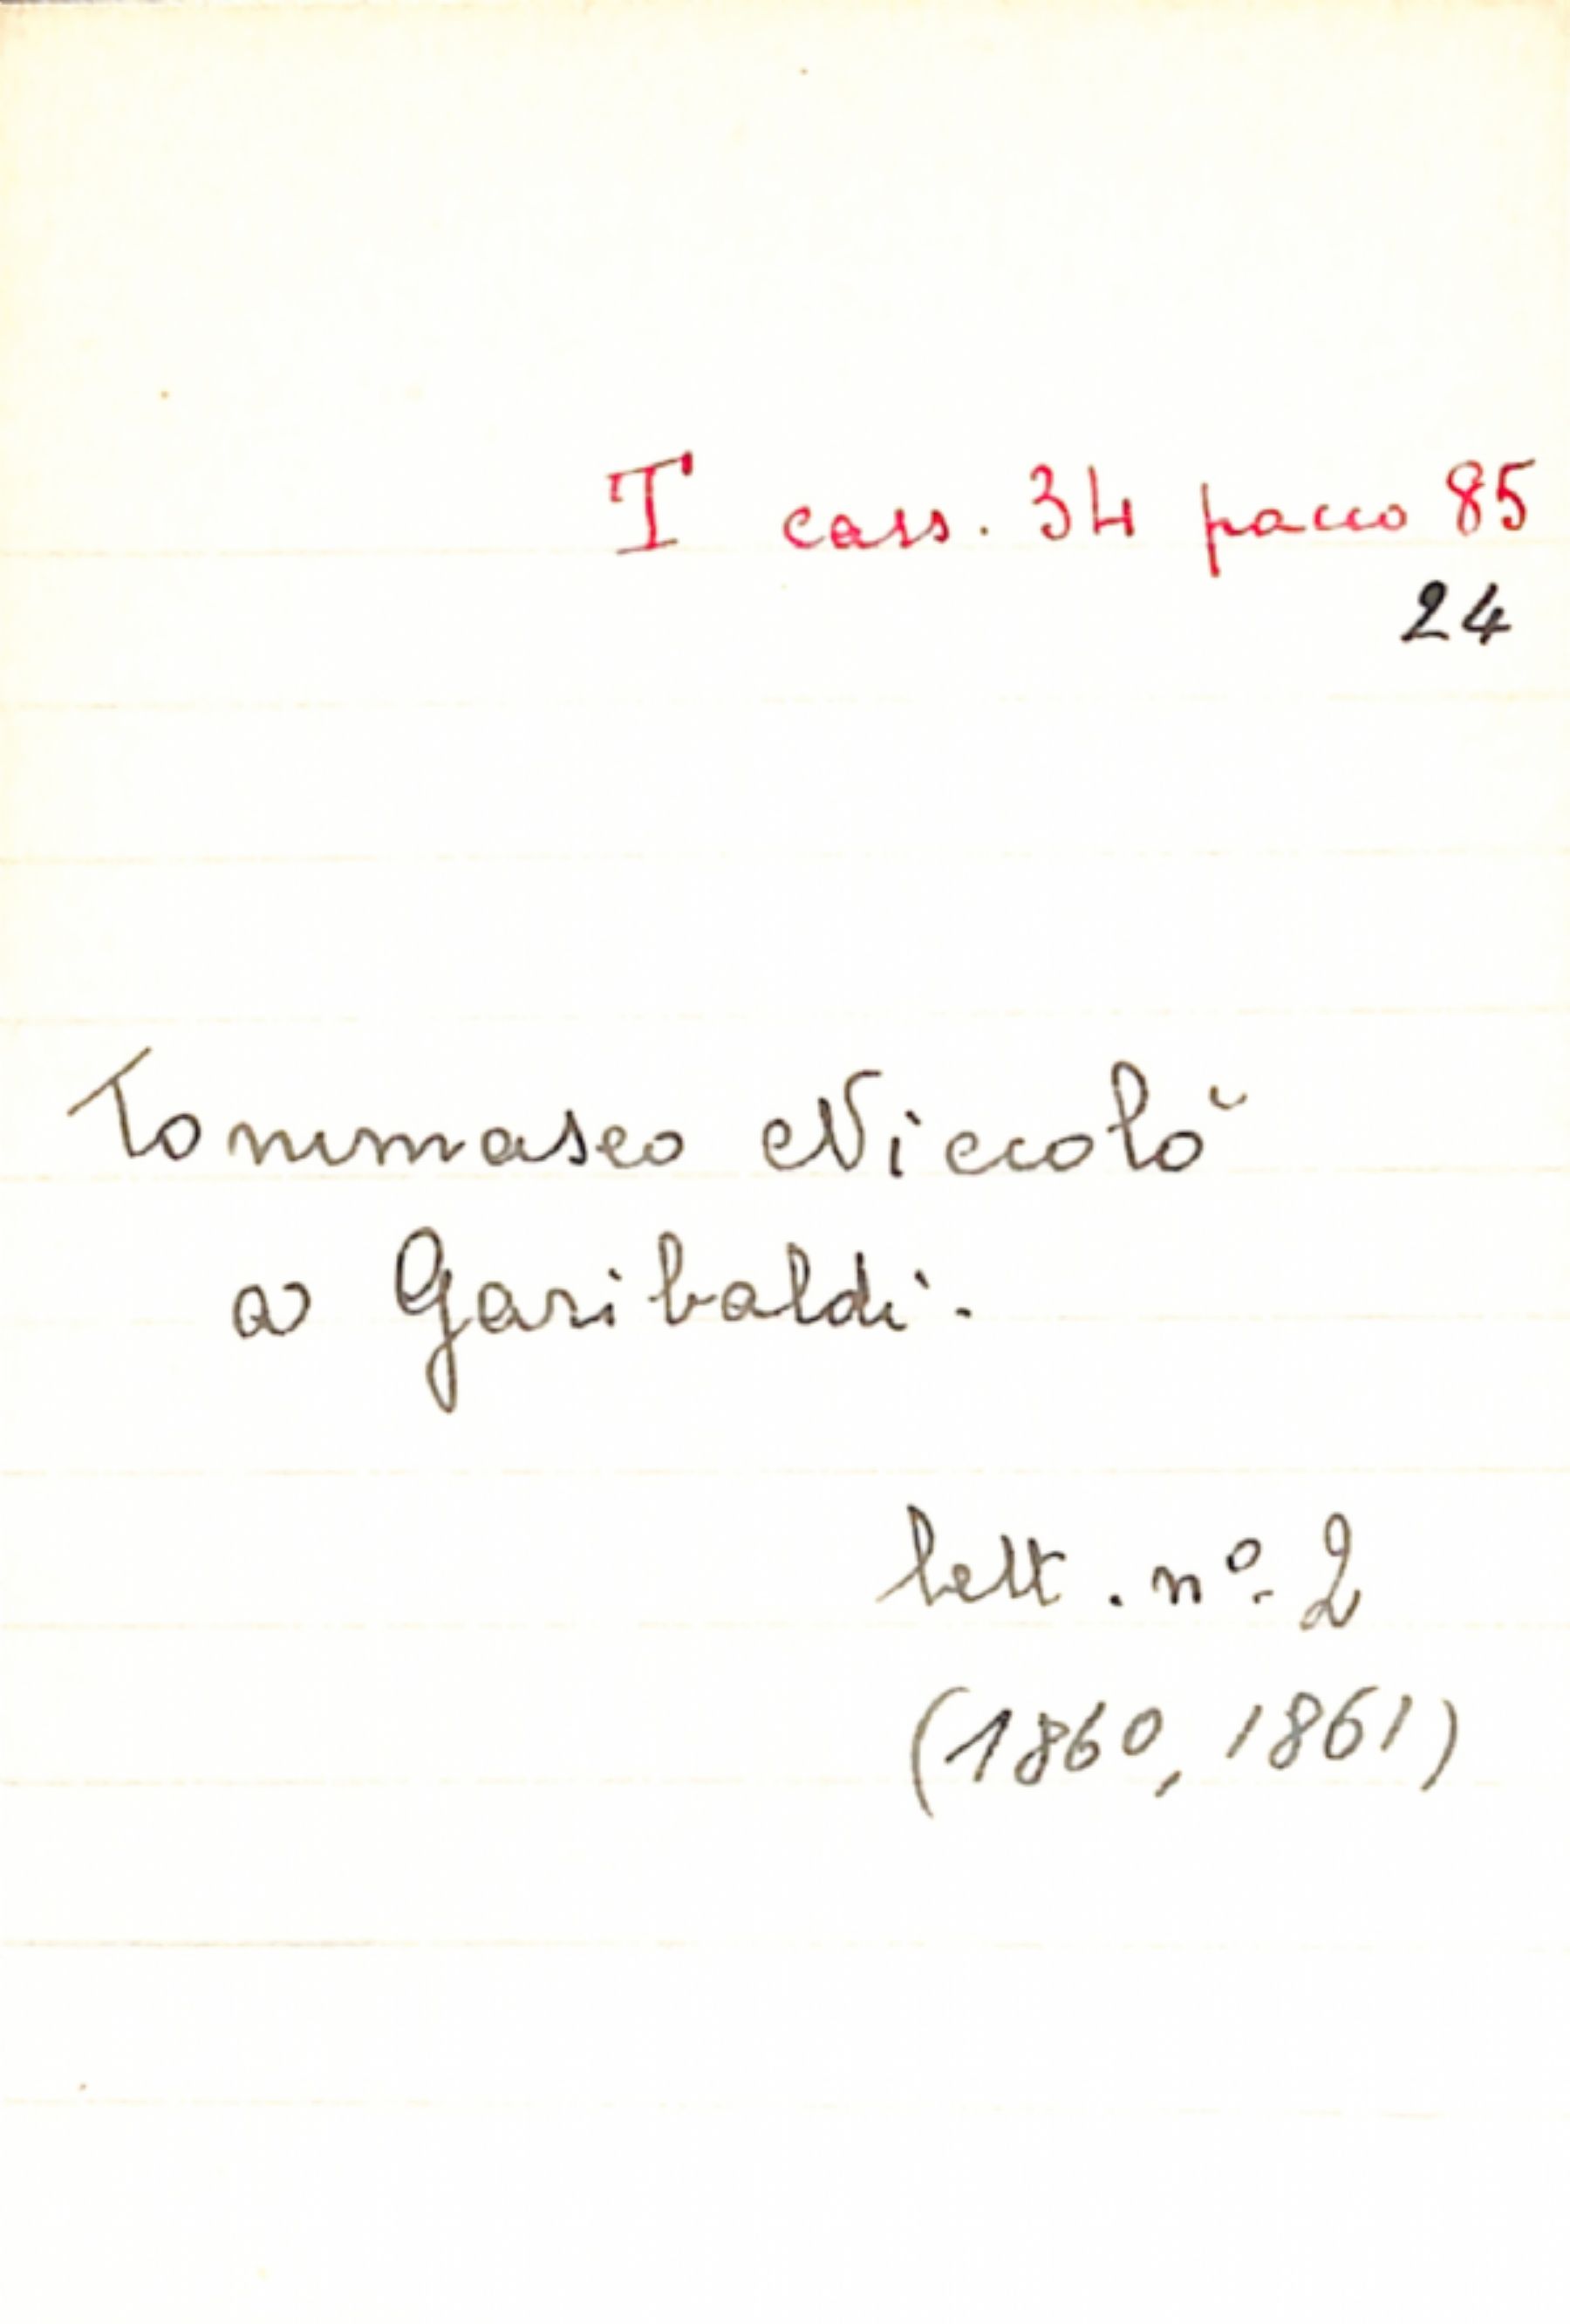 T cass. 34 pacco 85
24
Tommaseo Niccolò
a Garibaldi.
lett. nº 2
(1860, 1861)